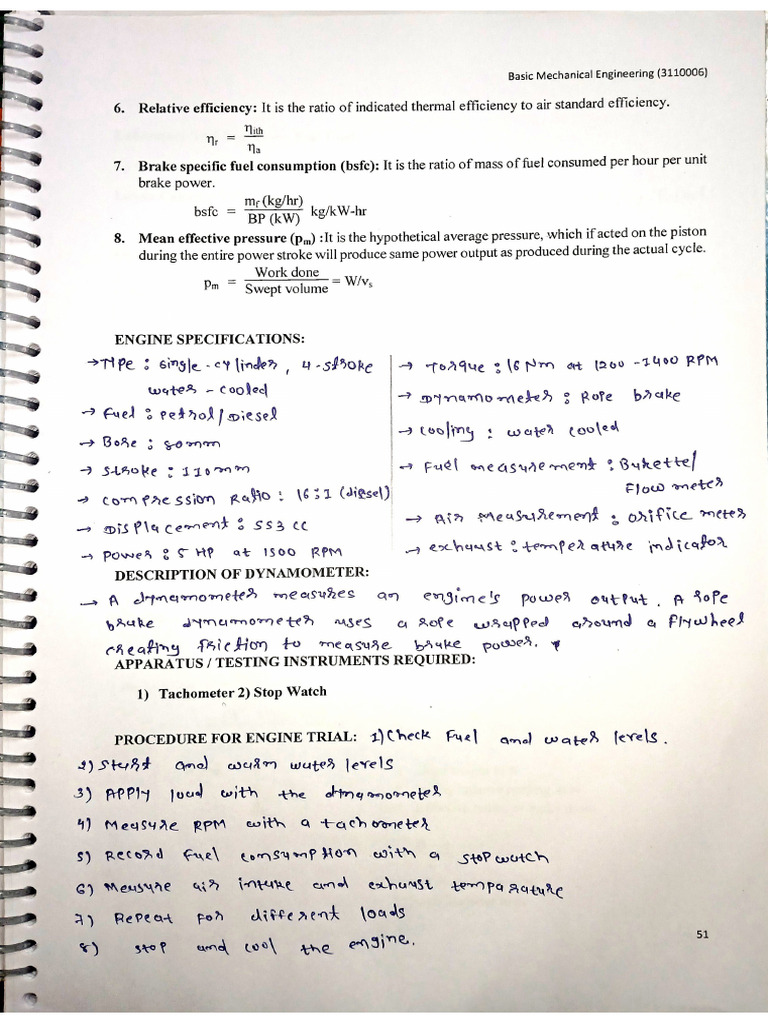 Basic Mechanical Engineering (3110006)
6. Relative efficiency: It is the ratio of indicated thermal efficiency to air standard efficiency.
ηr = ηith / ηa
7. Brake specific fuel consumption (bsfc): It is the ratio of mass of fuel consumed per hour per unit
brake power.
bsfc = mf (kg/hr) / BP (kW) kg/kW-hr
8. Mean effective pressure (pm) :It is the hypothetical average pressure, which if acted on the piston
during the entire power stroke will produce same power output as produced during the actual cycle.
pm = Work done / Swept volume = W/vs
ENGINE SPECIFICATIONS:
→ Type : single-cylinder, 4-stroke
water-cooled
→ Fuel : petrol/Diesel
→ Bore : 80mm
→ stroke : 110mm
→ compression Ratio : 16:1 (diesel)
→ Displacement : 553 CC
→ Power : 5 HP at 1500 RPM
→ Torque : 16 Nm at 1200-1400 RPM
→ Dynamometer : Rope brake
→ cooling : water cooled
→ Fuel measurement : Burette/
Flow meter
→ Air Measurement : orifice meter
→ exhaust : temperature indicator
DESCRIPTION OF DYNAMOMETER:
→ A dynamometer measures an engine's power output. A rope
brake dynamometer uses a rope wrapped around a flywheel
creating friction to measure brake power.
APPARATUS / TESTING INSTRUMENTS REQUIRED:
1) Tachometer 2) Stop Watch
PROCEDURE FOR ENGINE TRIAL: 1) Check Fuel and water levels.
2) Start and warm water levels
3) APPly load with the dynamometer
4) Measure RPM with a tachometer
5) Record Fuel consumption with a stopwatch
6) Measure air intake and exhaust temparature
7) Repeat for different loads
8) stop and cool the engine.
51